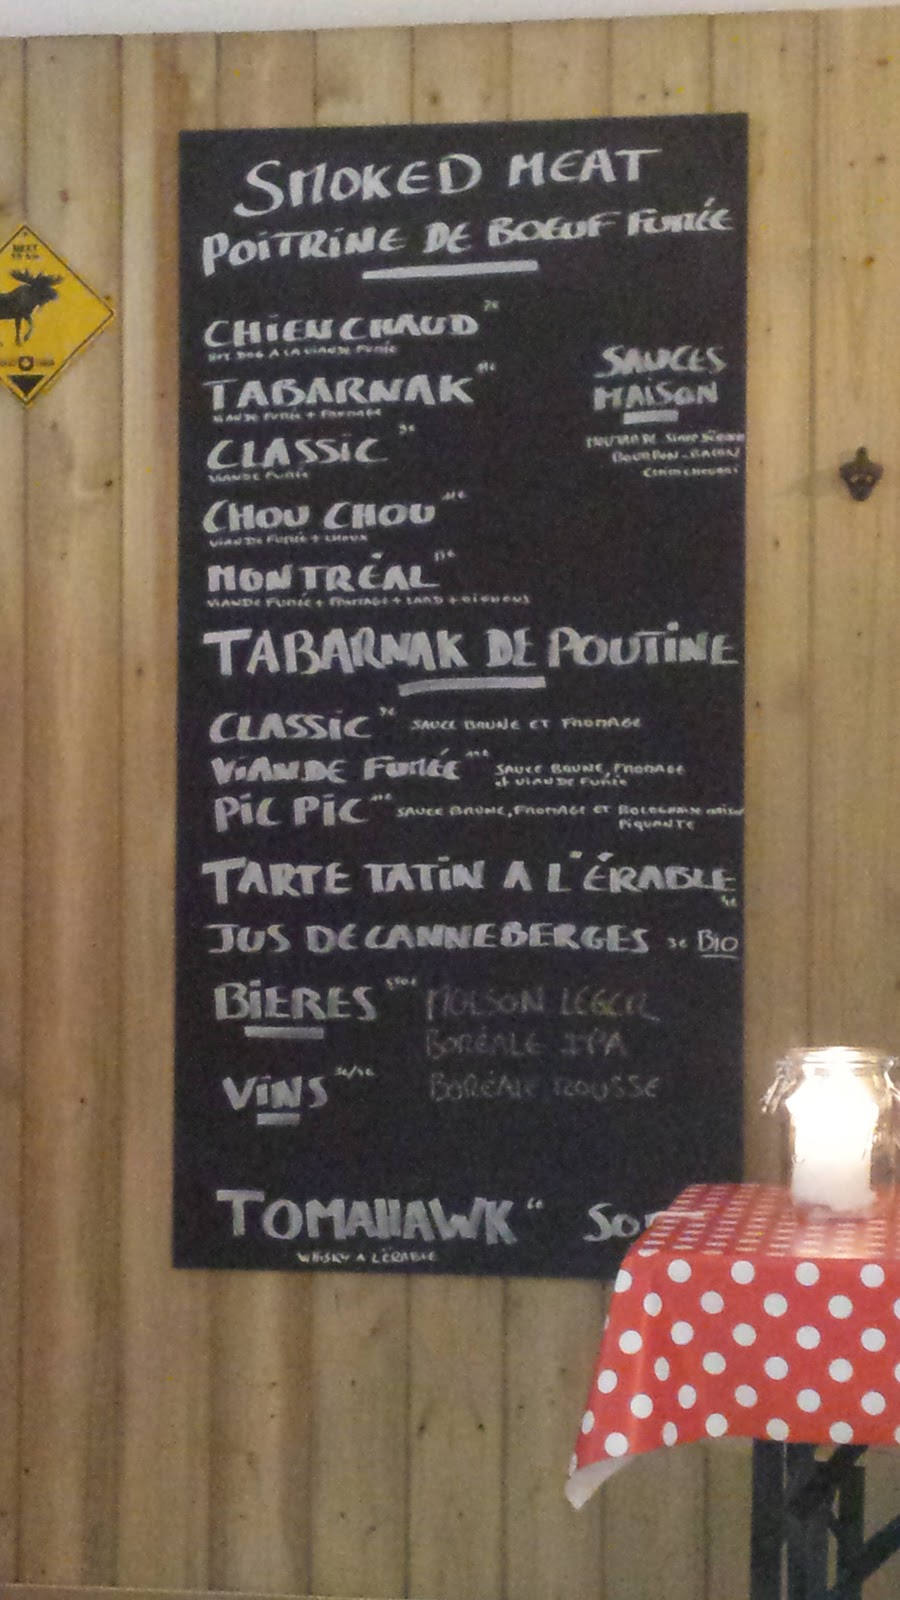 SMOKED MEAT
POITRINE DE BOEUF FUMÉE
CHIEN CHAUD 7€
HOT DOG A LA VIANDE FUMÉE
TABARNAK
VIANDE FUMÉE + FROMAGE
CLASSIC 9€
VIANDE FUMÉE
CHOU CHOU
VIANDE FUMÉE + CHOUX
MONTRÉAL
VIANDE FUMÉE + FROMAGE + LARD + OIGNONS
SAUCES
MAISON
MOUTARDE
BOURBON - BACON
TABARNAK DE POUTINE
CLASSIC 9€ SAUCE BRUNE ET FROMAGE
VIANDE FUMÉE SAUCE BRUNE, FROMAGE
et VIANDE FUMÉE
PIC PIC SAUCE BRUNE, FROMAGE ET BOLOGNAISE
PIQUANTE
TARTE TATIN A L'ÉRABLE
JUS DE CANNEBERGES 3€ BIO
BIERES MOLSON LÉGER
BORÉALE IPA
VINS BORÉALE ROUSSE
TOMAHAWK 6€
WHISKY A L'ÉRABLE